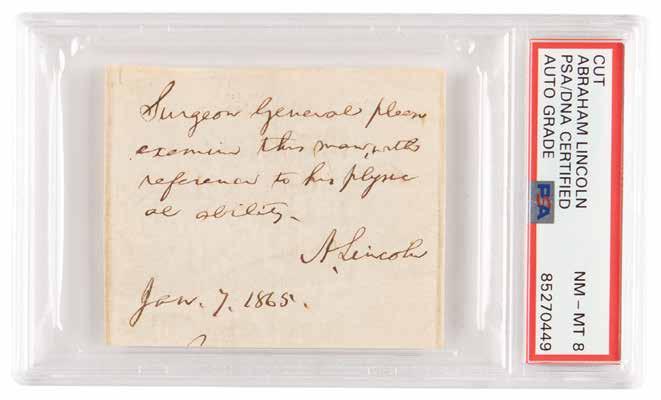 Surgeon General please
examine this man, with
reference to his physic
al ability.
A. Lincoln
Jan. 7. 1865.
CUT
ABRAHAM LINCOLN
PSA/DNA CERTIFIED
AUTO GRADE
PSA
NM - MT 8
85270449